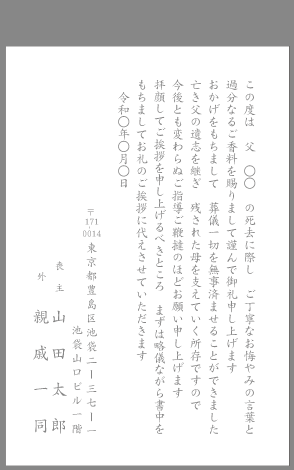 この度は　父　〇〇　の死去に際し　ご丁寧なお悔やみの言葉と
過分なるご香料を賜りまして謹んで御礼申し上げます
おかげをもちまして　葬儀一切を無事済ませることができました
亡き父の遺志を継ぎ　残された母を支えていく所存ですので
今後とも変わらぬご指導ご鞭撻のほどお願い申し上げます
拝顔してご挨拶を申し上げるべきところ　まずは略儀ながら書中を
もちましてお礼のご挨拶に代えさせていただきます
令和〇年〇月〇日
〒171 0014
東京都豊島区池袋二ー三七ー一
池袋山口ビル一階
喪主　山田太郎
外　親戚一同